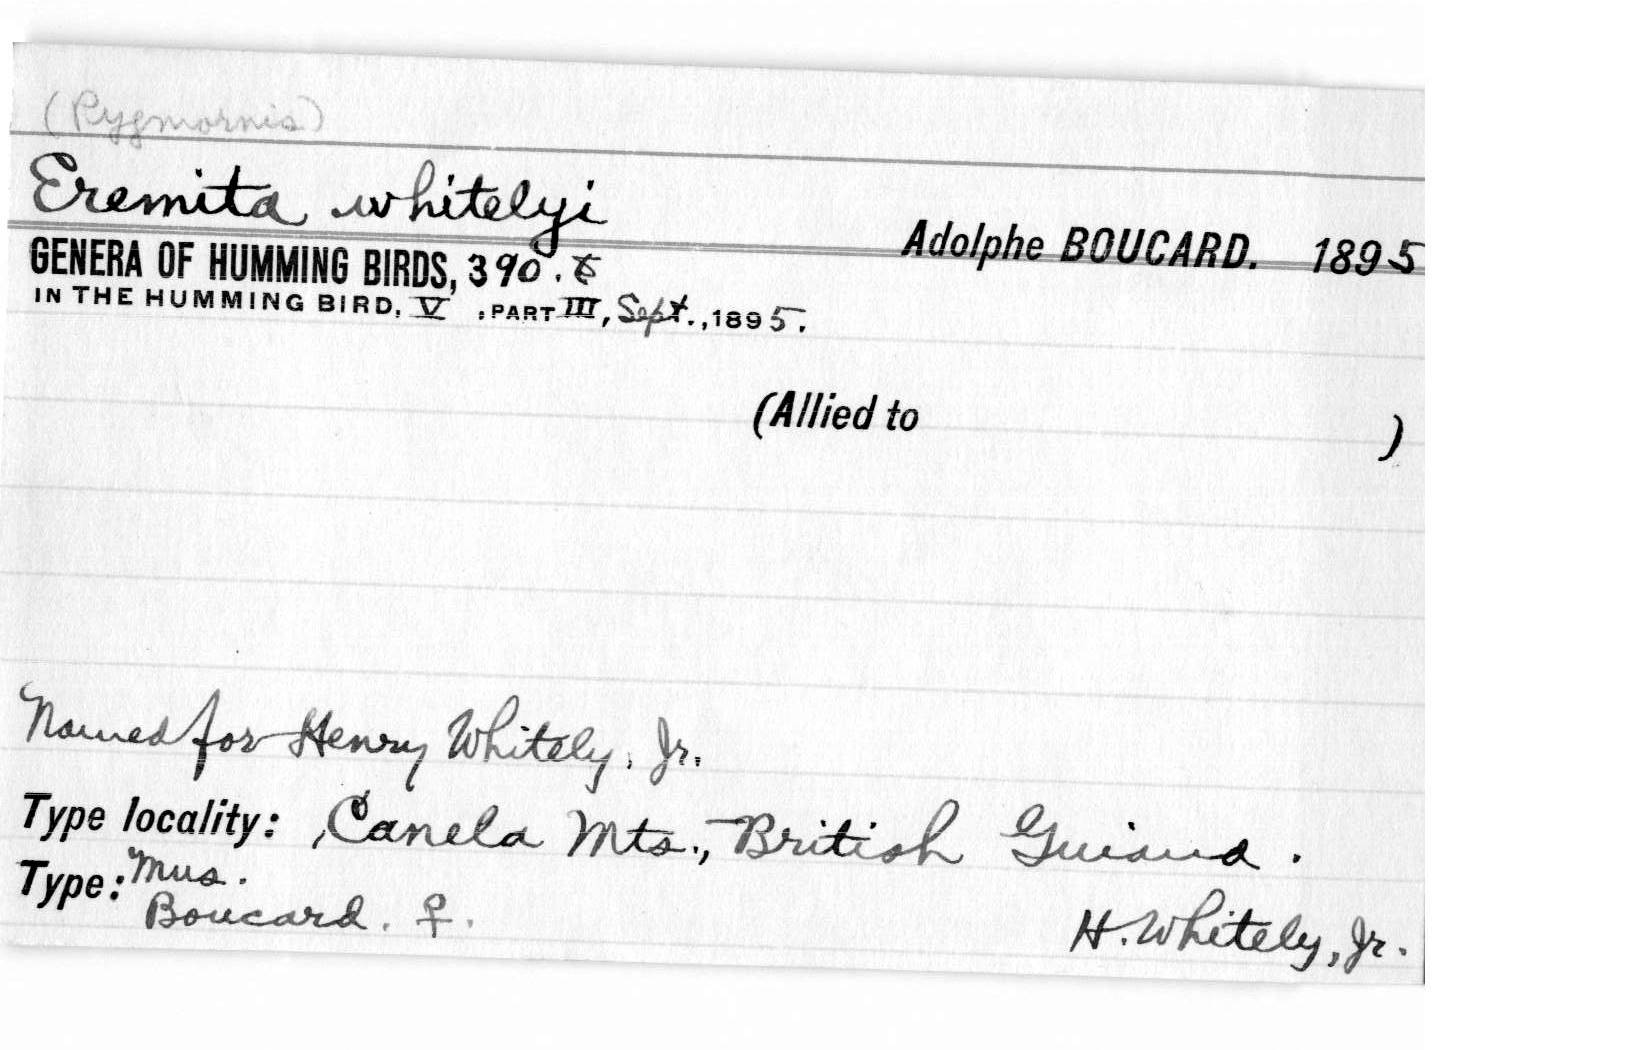 (Pygmornis)
Eremita whitelyi
Adolphe BOUCARD. 1895
GENERA OF HUMMING BIRDS, 390.
IN THE HUMMING BIRD, V, PART III, Sept., 1895.
(Allied to )
Named for Henry Whitely, Jr.
Type locality: Canela Mts., British Guiana.
Type: Mus.
Boucard. ♀.
H. Whitely, Jr.